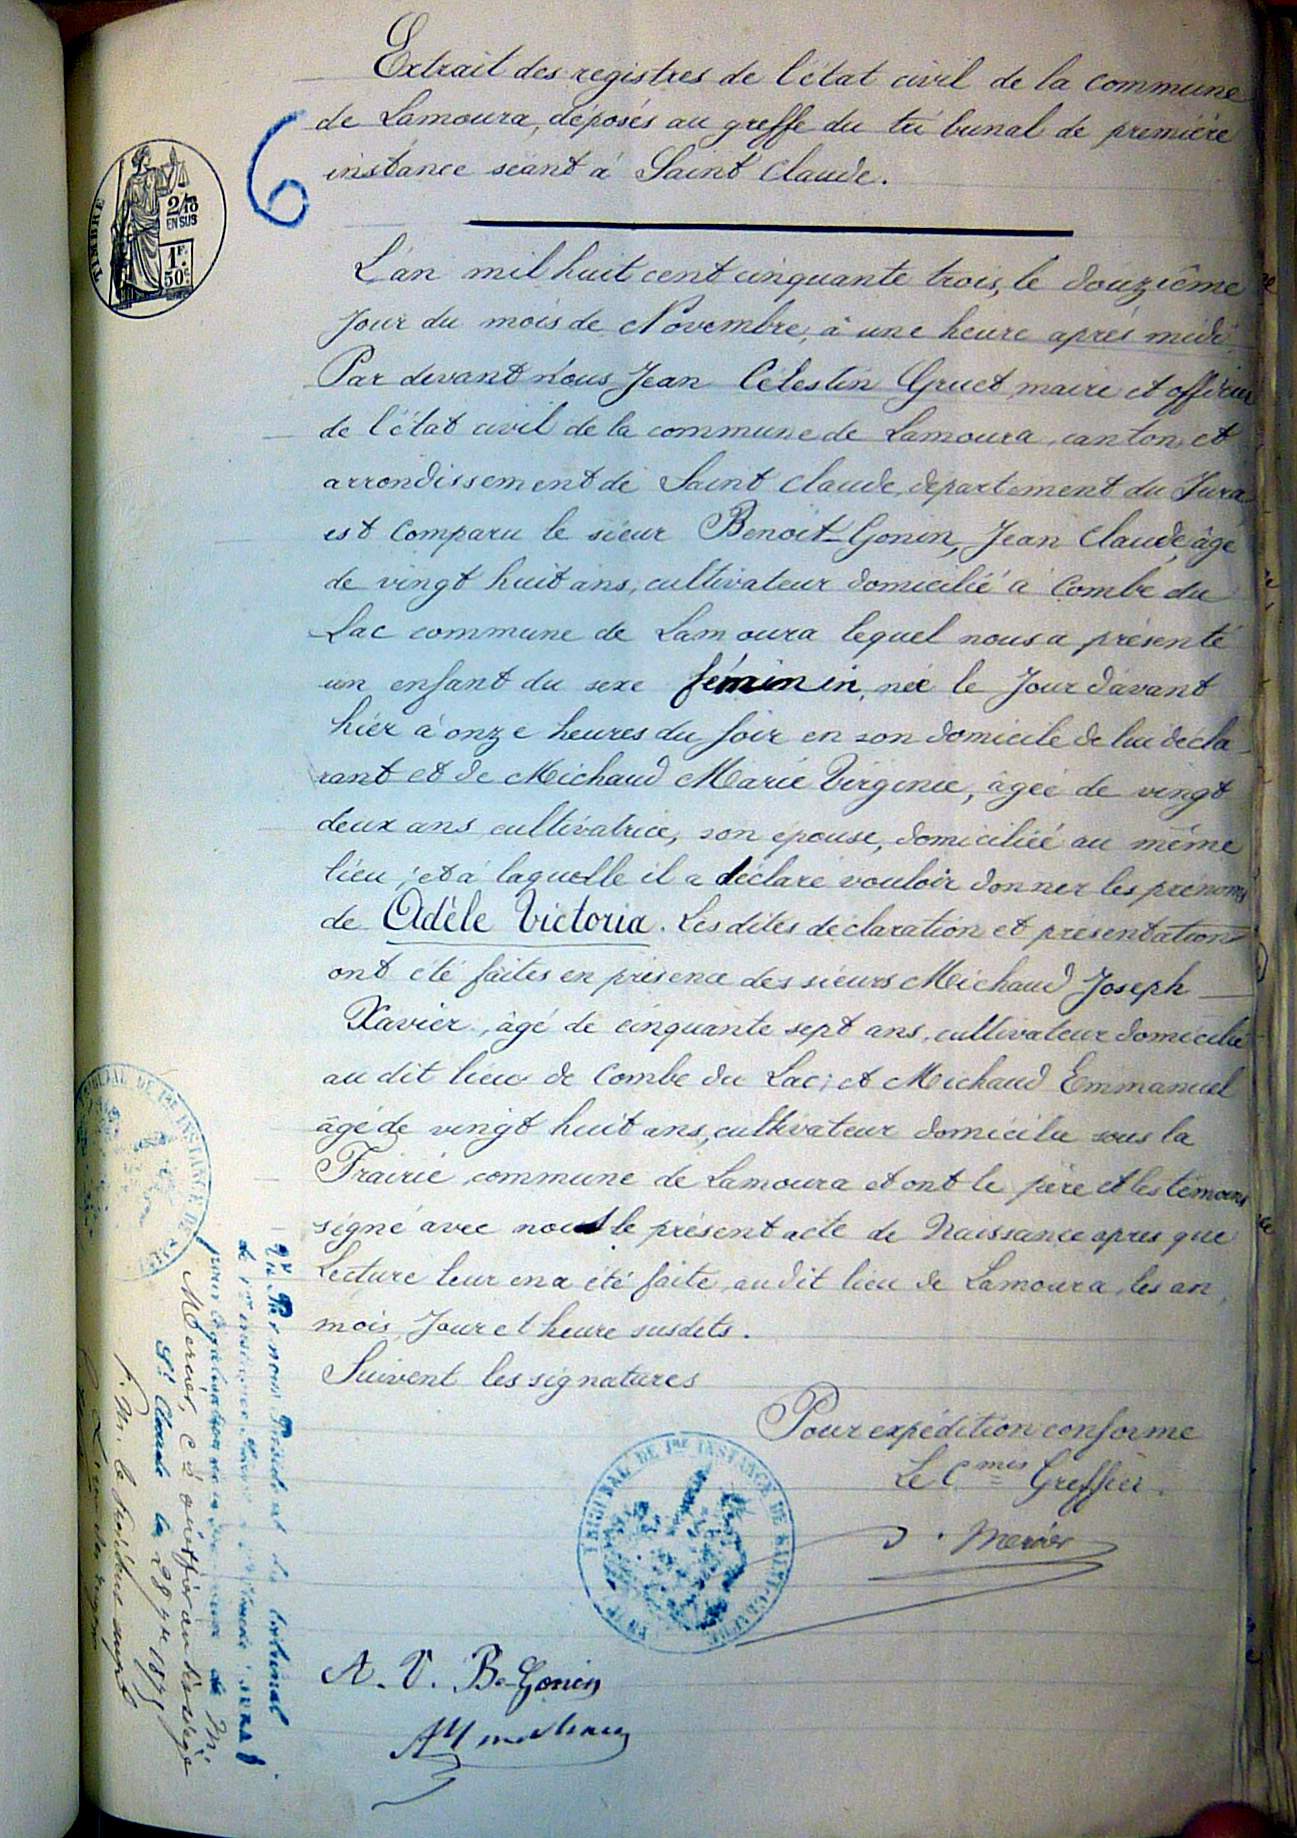 Extrait des registres de l'état civil de la commune
de Lamoura, déposés au greffe du tribunal de première
instance séant à Saint Claude.
6
TIMBRE
2/10
EN SUS
1F.
50c
L'an mil huit cent cinquante trois, le douzième
Jour du mois de Novembre, à une heure après midi
Par devant Nous Jean Célestin Gruet, maire et officier
de l'état civil de la commune de Lamoura, canton et
arrondissement de Saint Claude, département du Jura
est Comparu le sieur Benoit-Gonin, Jean Claude, âgé
de vingt huit ans, cultivateur domicilié à Combe du
Lac commune de Lamoura lequel nous a présenté
un enfant du sexe féminin, née le Jour d'avant
hier à onze heures du soir en son domicile de lui décla
rant et de Michaud Marie Virginie, âgée de vingt
deux ans cultivatrice, son épouse, domiciliée au même
lieu; et à laquelle il a déclaré vouloir donner les prénoms
de Adèle Victoria. Les dites déclaration et présentation
ont été faites en présence des sieurs Michaud Joseph
Xavier, âgé de cinquante sept ans, cultivateur domicilié
au dit lieu de Combe du Lac; et Michaud Emmanuel
âgé de vingt huit ans, cultivateur domicilié sous la
Frairie, commune de Lamoura et ont le père et les témoins
signé avec nous le présent acte de Naissance après que
Lecture leur en a été faite, au dit lieu de Lamoura, les an,
mois, Jour et heure susdits.
Suivent les signatures
Pour expédition conforme
Le Cmis Greffier.
Mercier
TRIBUNAL DE 1re INSTANCE DE SAINT-CLAUDE
A. V. Be-Gonin
TRIBUNAL DE 1re INSTANCE DE
Vu Par nous Président du tribunal
de 1re instance
pour légalisation de la signature de M.
Mercier, cs greffier
St Claude le 28 1875